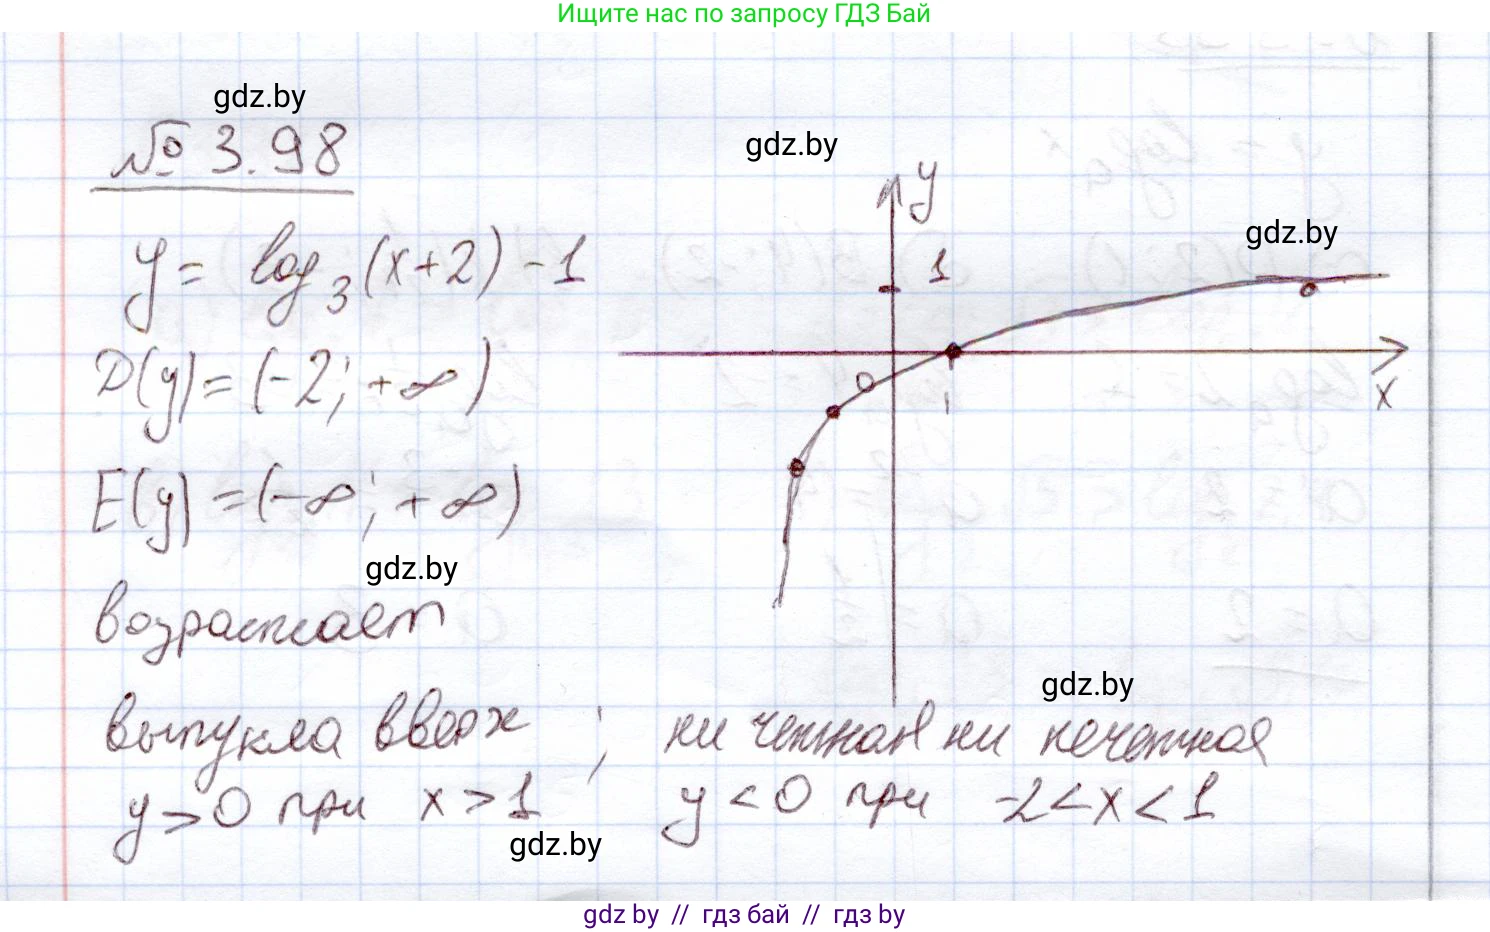 Ищите нас по запросу ГДЗ Бай
gdz.by
№ 3.98
gdz.by
y
gdz.by
1
y = log₃(x+2) - 1
D(y) = (-2; +∞)
0
1
x
E(y) = (-∞; +∞)
gdz.by
возрастает
gdz.by
выпукла вверх ; ни четная ни нечетная
y > 0 при x > 1 y < 0 при -2 < x < 1
gdz.by
gdz by // гдз бай // гдз by